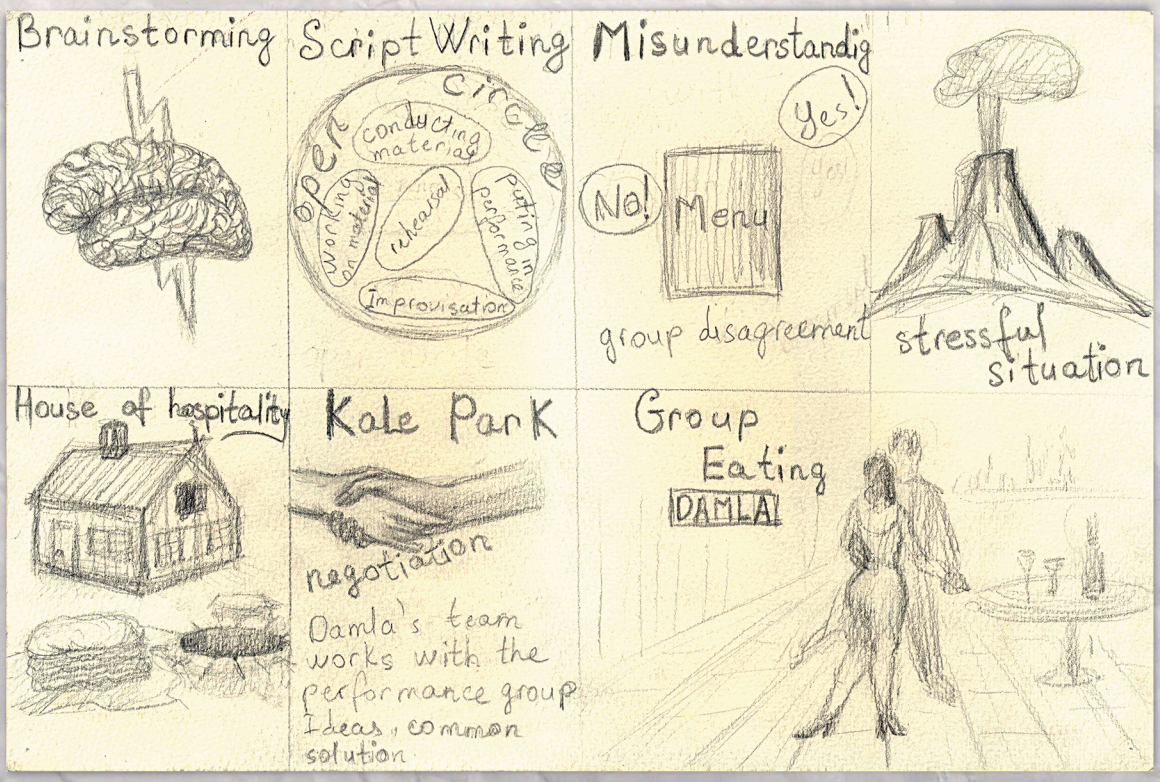 Brainstorming
Script Writing
open circle
conducting
material
working
on material
rehearsal
puting in
performance
Improvisation
Misunderstandig
Yes!
(yes!)
No!
Menu
group disagreement
stressful
situation
House of hospitality
Kale Park
negotiation
Damla's team
works with the
performance group
Ideas, common
solution
Group
Eating
DAMLA